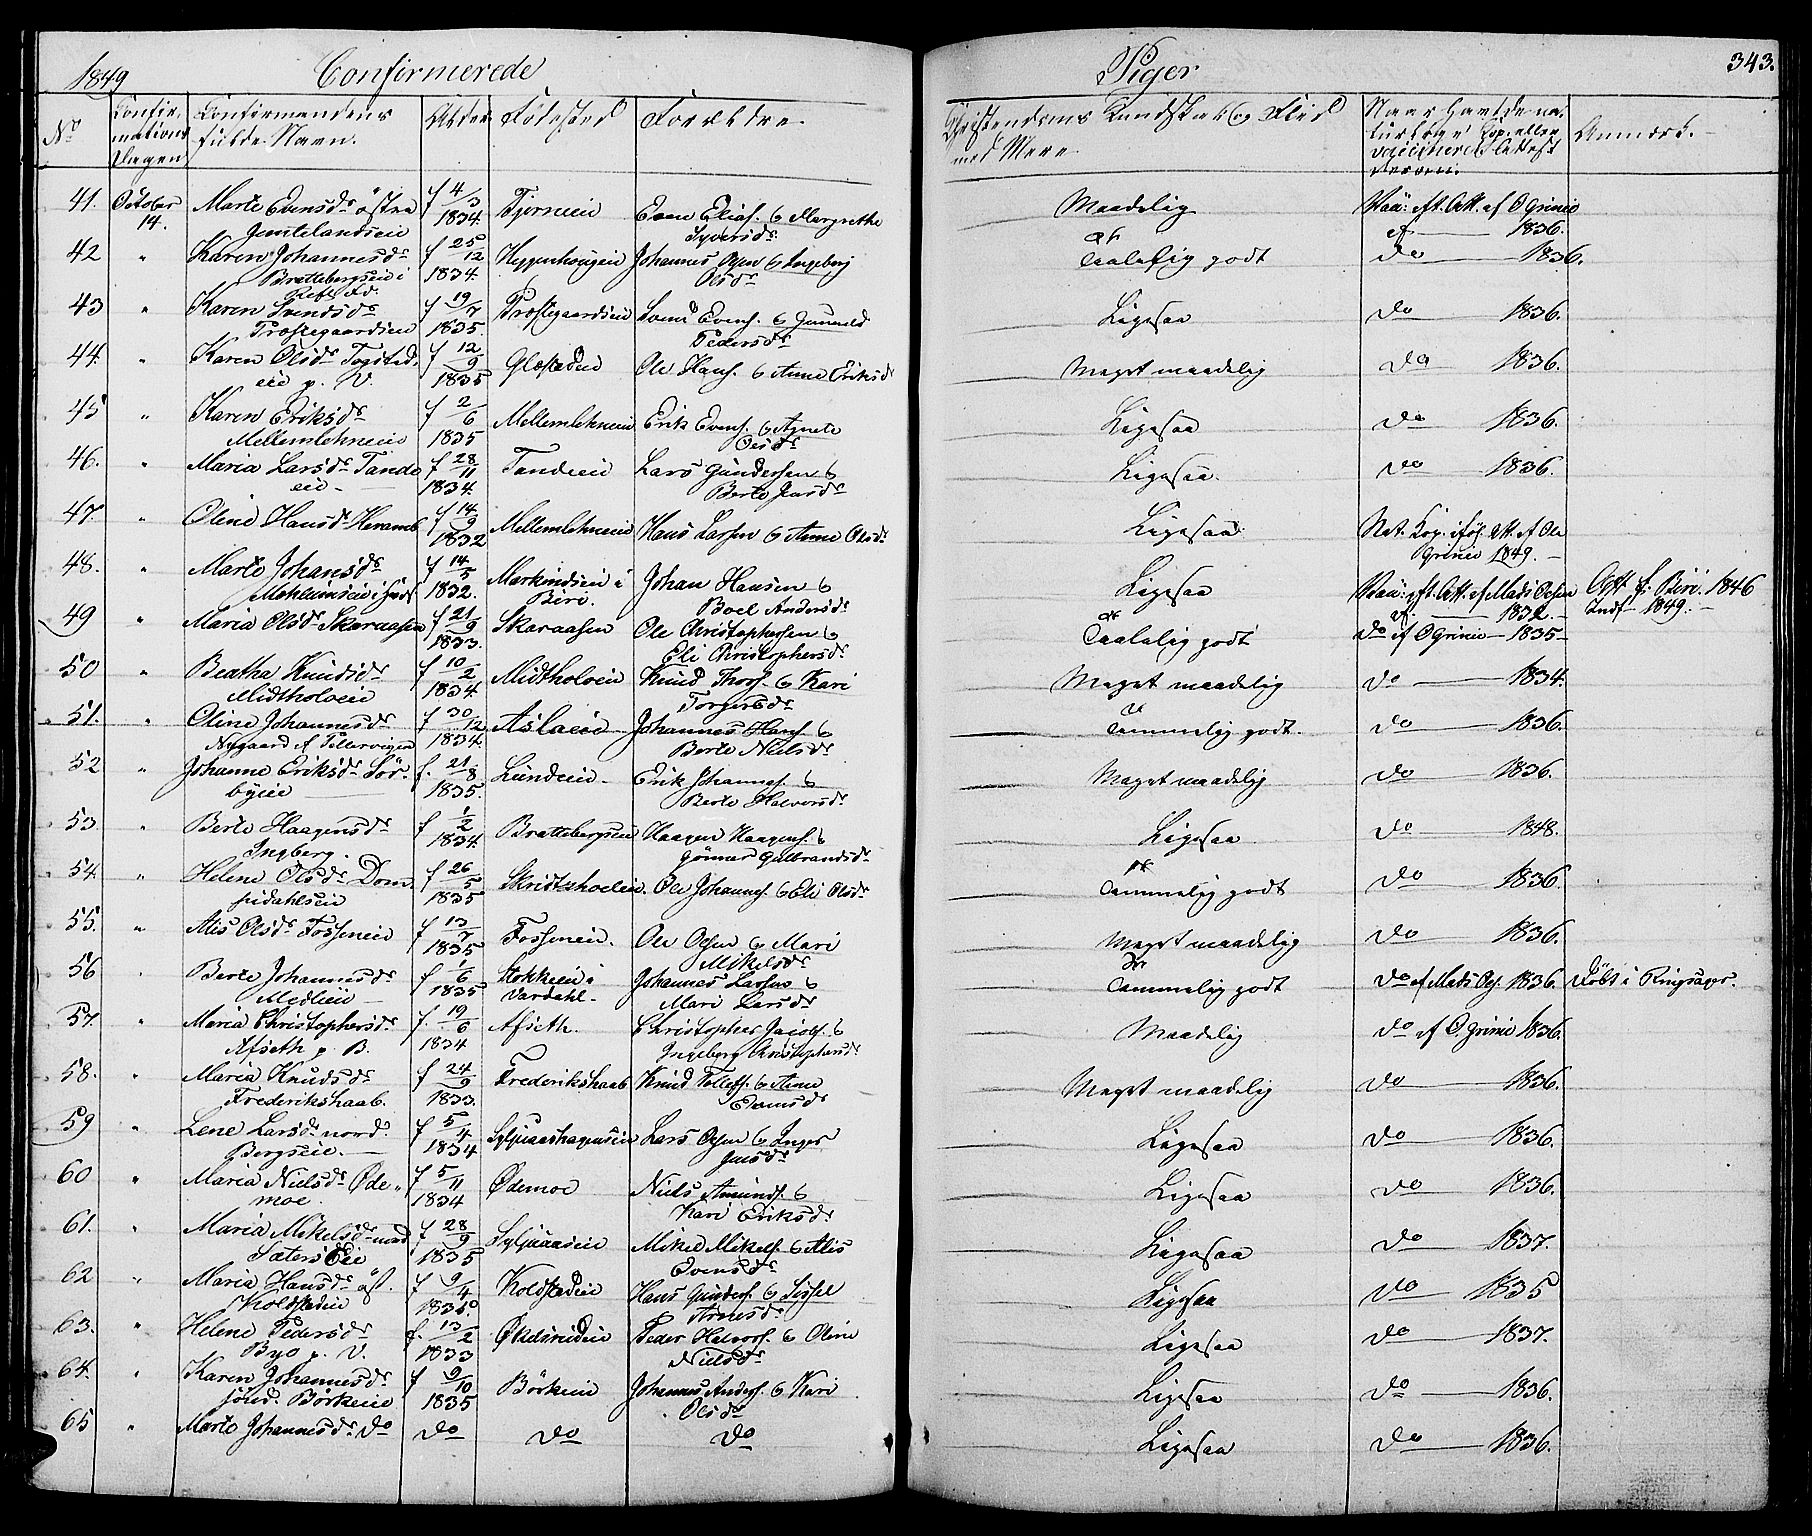 1849 Confirmerede Piger 343.
No Confirmations Dagen Confirmandens fulde Navn. Alder Födested Forældre Christendoms Kundskab og Flid med Mere Naar havt de naturlige Kop. eller vaccineret Attest derom. Anmærk.
41. October 14. Marte Evensdr östre f 4/3 1834 Even Eliass. & Margrethe Syversdr Maadelig Vaci: eft. Att. af O Grinie 1836.
42 " Karen Johannesdr Brattebergseie f 25/12 1834. Johannes Olsen & Ingeborg Olsdr Taalelig godt do 1836.
43 " Karen Svendsdr Præstegaardseien f 19/7 1835 Præstegaardseien Svend Evens. & Gunild Pedersdr Ligesaa do 1836.
44. " Karen Olsdr eie p. V. f 12/9 1835 Ole Hans. & Anne Eriksdr Meget maadelig do 1836.
45 " Karen Eriksdr Mellemlehneeie f 2/6 1835 Mellemlehneeie Erik Evens. & Agnete Olsdr Ligesaa do 1836.
46. " Maria Larsdr Tande eie f 28/11 1834. Tandeeie Lars Gundersen & Berte Jensdr Ligesaa. do 1836.
47. " Oline Hansdr Heramb f 14/9 1832 Mellemlehneeie Hans Larsen & Anne Olsdr Ligesaa Nat. Kop. iføl. Att. af Ole Grinie 1849.
48. " Marte Johansdr f 14/5 1832. i Biri. Johan Hansen & Boel Andersdr Ligesaa Vaci: eft. Att. af Mads Olsen 1832. Opf. f. Biri. 1846 Indf 1849.
49 " Maria Olsdr Skaraasen f 21/9 1833. Skaraasen Ole Christophersen & Eli Christophersdr Taalelig godt do af O Grinie 1835
50 " Beathe Knudsdr Midtholoeie f 10/2 1834. Midtholoeie Knud Thors. & Kari Torgersdr Meget maadelig do 1834.
51. " Oline Johannesdr Nygaard f 30/12 1834. Aslaeie Johannes Hans. & Berte Nielsdr Temmelig godt. do 1836.
52 " Johanne Eriksdr Sörbyeie f. 21/8 1835. Lundeeie Erik Johannes. & Berte Halvorsdr Meget maadelig do 1836.
53. " Berte Haagensdr Ingberg. f 1/2 1834. Brattebergseie Haagen Haagens. & Gönner Gulbrandsdr Ligesaa do 1848.
54. " Helene Olsdr f 26/5 1835 Ole Johannes. & Eli Olsdr Temmelig godt do 1836.
55. " Alis Olsdr Fosseneie f 13/7 1835 Fosseneie. Ole Olsen & Mari Mikelsdr Meget maadelig do 1836.
56 " Berte Johannesdr Medlieie f 1/6 1835 Stokkeeie i Vardahl Johannes Larsen & Mari Larsdr Temmelig godt do af Mads Ols. 1836. Döbt i Ringsager.
57. " Maria Christophersdr Afseth p. B. f. 19/6 1834 Afseth. Christopher Jacobs. & Ingeborg Christophersdr Maadelig do af O. Grinie 1836.
58. " Maria Knudsdr Frederikshaab. f 24/9 1833. Frederikshaab Knud Tollefs. & Anne Evensdr Meget maadelig do 1836.
59 " Lene Larsdr nord. Bergseie. f 5/4 1834 Lars Olsen & Inger Jensdr Ligesaa do 1836.
60 " Maria Nielsdr Ødemoe. f 5/11 1834 Ødemoe Niels Amunds. & Kari Eriksdr Ligesaa do 1836.
61. " Maria Mikelsdr nord Sæters Eie f 28/9 1835 Syljuaaseie Mikel Mikels. & Alis Evensdr Ligesaa do 1837.
62 " Maria Hansdr öst. Koldstadeie f 9/4 1835 Koldstadeie Hans Gunders. & Sissel Arnesdr Ligesaa do 1835
63. " Helene Pedersdr Byo p. V. f. 13/2 1833 Økelsrudeie Peder Halvors. & Oline Nielsdr Ligesaa do 1837.
64. " Karen Johannesdr sönd. Börkeeie f 9/10 1835 Börkeeie Johannes Anders. & Kari Olsdr Ligesaa do 1836.
65 " Marte Johannesdr do do do do Ligesaa do 1836.